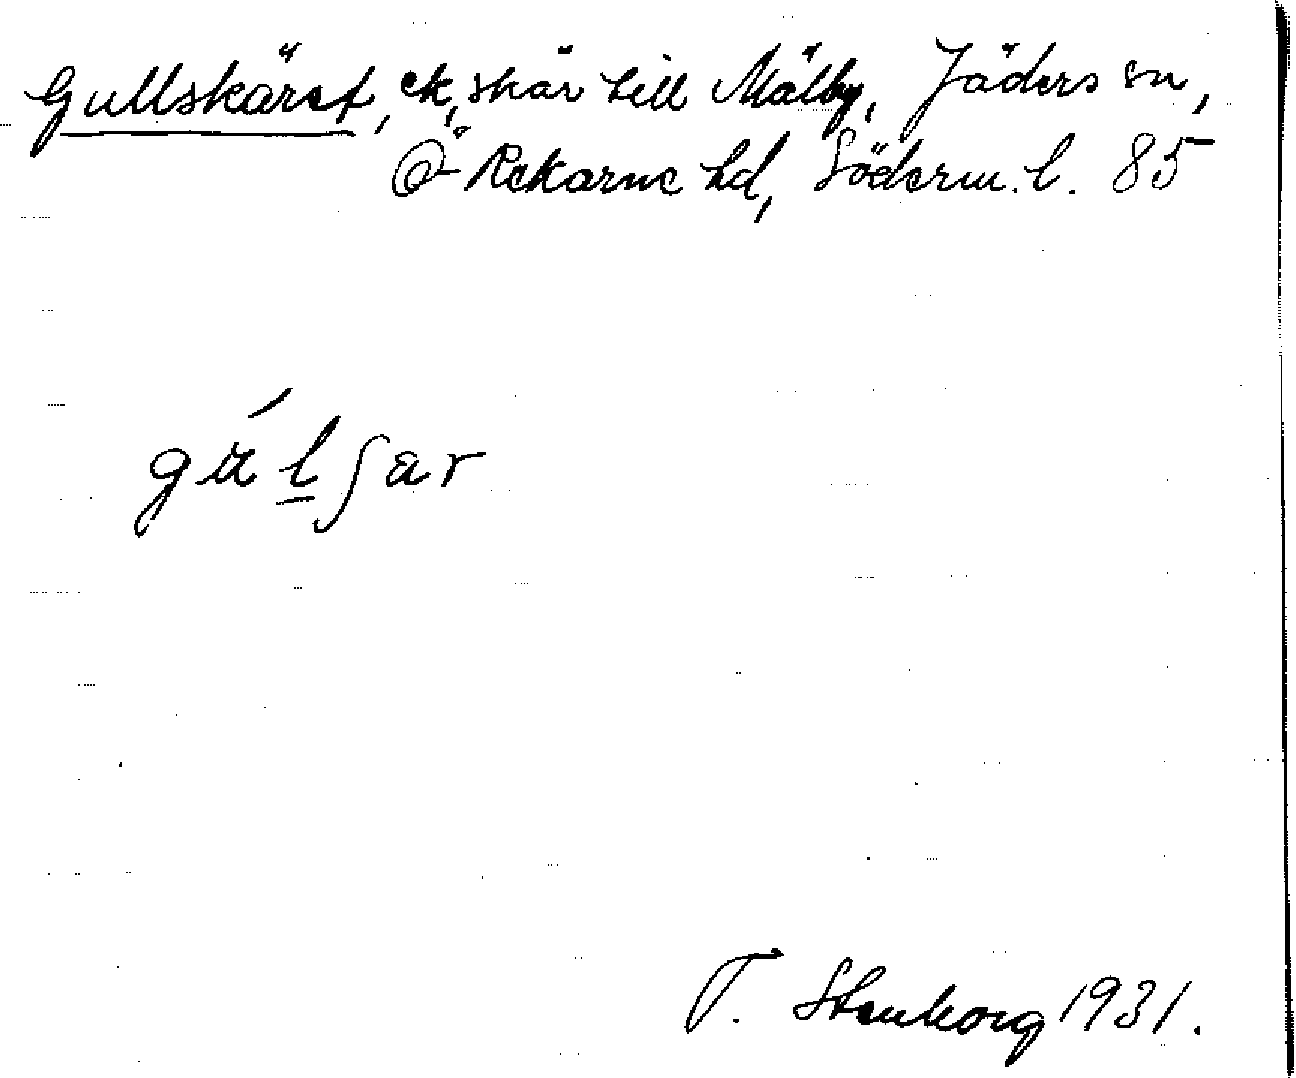 Gullskäret, ek, skär till Mälby, Jäders sn,
Ö Rekarne hd, Söderm. l. 85
gúl̲ʃär
T. Stenborg 1931.